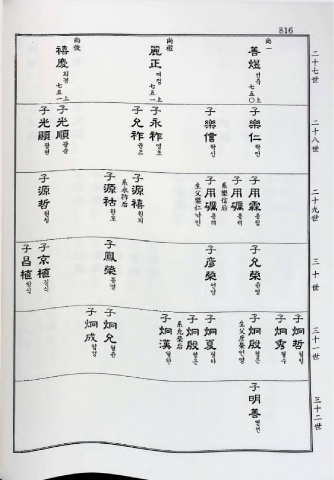 816
二十七世
尚一
善煜 선욱 七五〇上
尚煜
麗正 여정 七五一上
尚俊
禧慶 희경 七五一上
二十八世
子 樂仁 락인
子 樂信 락신
子 永祚 영조
子 允祚 윤조
子 光順 광순
子 光顯 광현
二十九世
子 用霖 용림
子 用驪 용려
系樂信后
子 用驪 용려
生父樂仁 낙인
子 源禧 원희
系永祚后
子 源祜 원호
子 源哲 원철
三十世
子 允榮 윤영
子 彦榮 언영
子 鳳榮 봉영
子 京植 경식
子 昌植 창식
三十一世
子 炯哲 형철
子 炯秀 형수
子 炯殷 형은
生父彦榮 언영
子 炯夏 형하
子 炯殷 형은
系允榮后
子 炯漢 형한
子 炯允 형윤
子 炯成 형성
三十二世
子 明善 명선